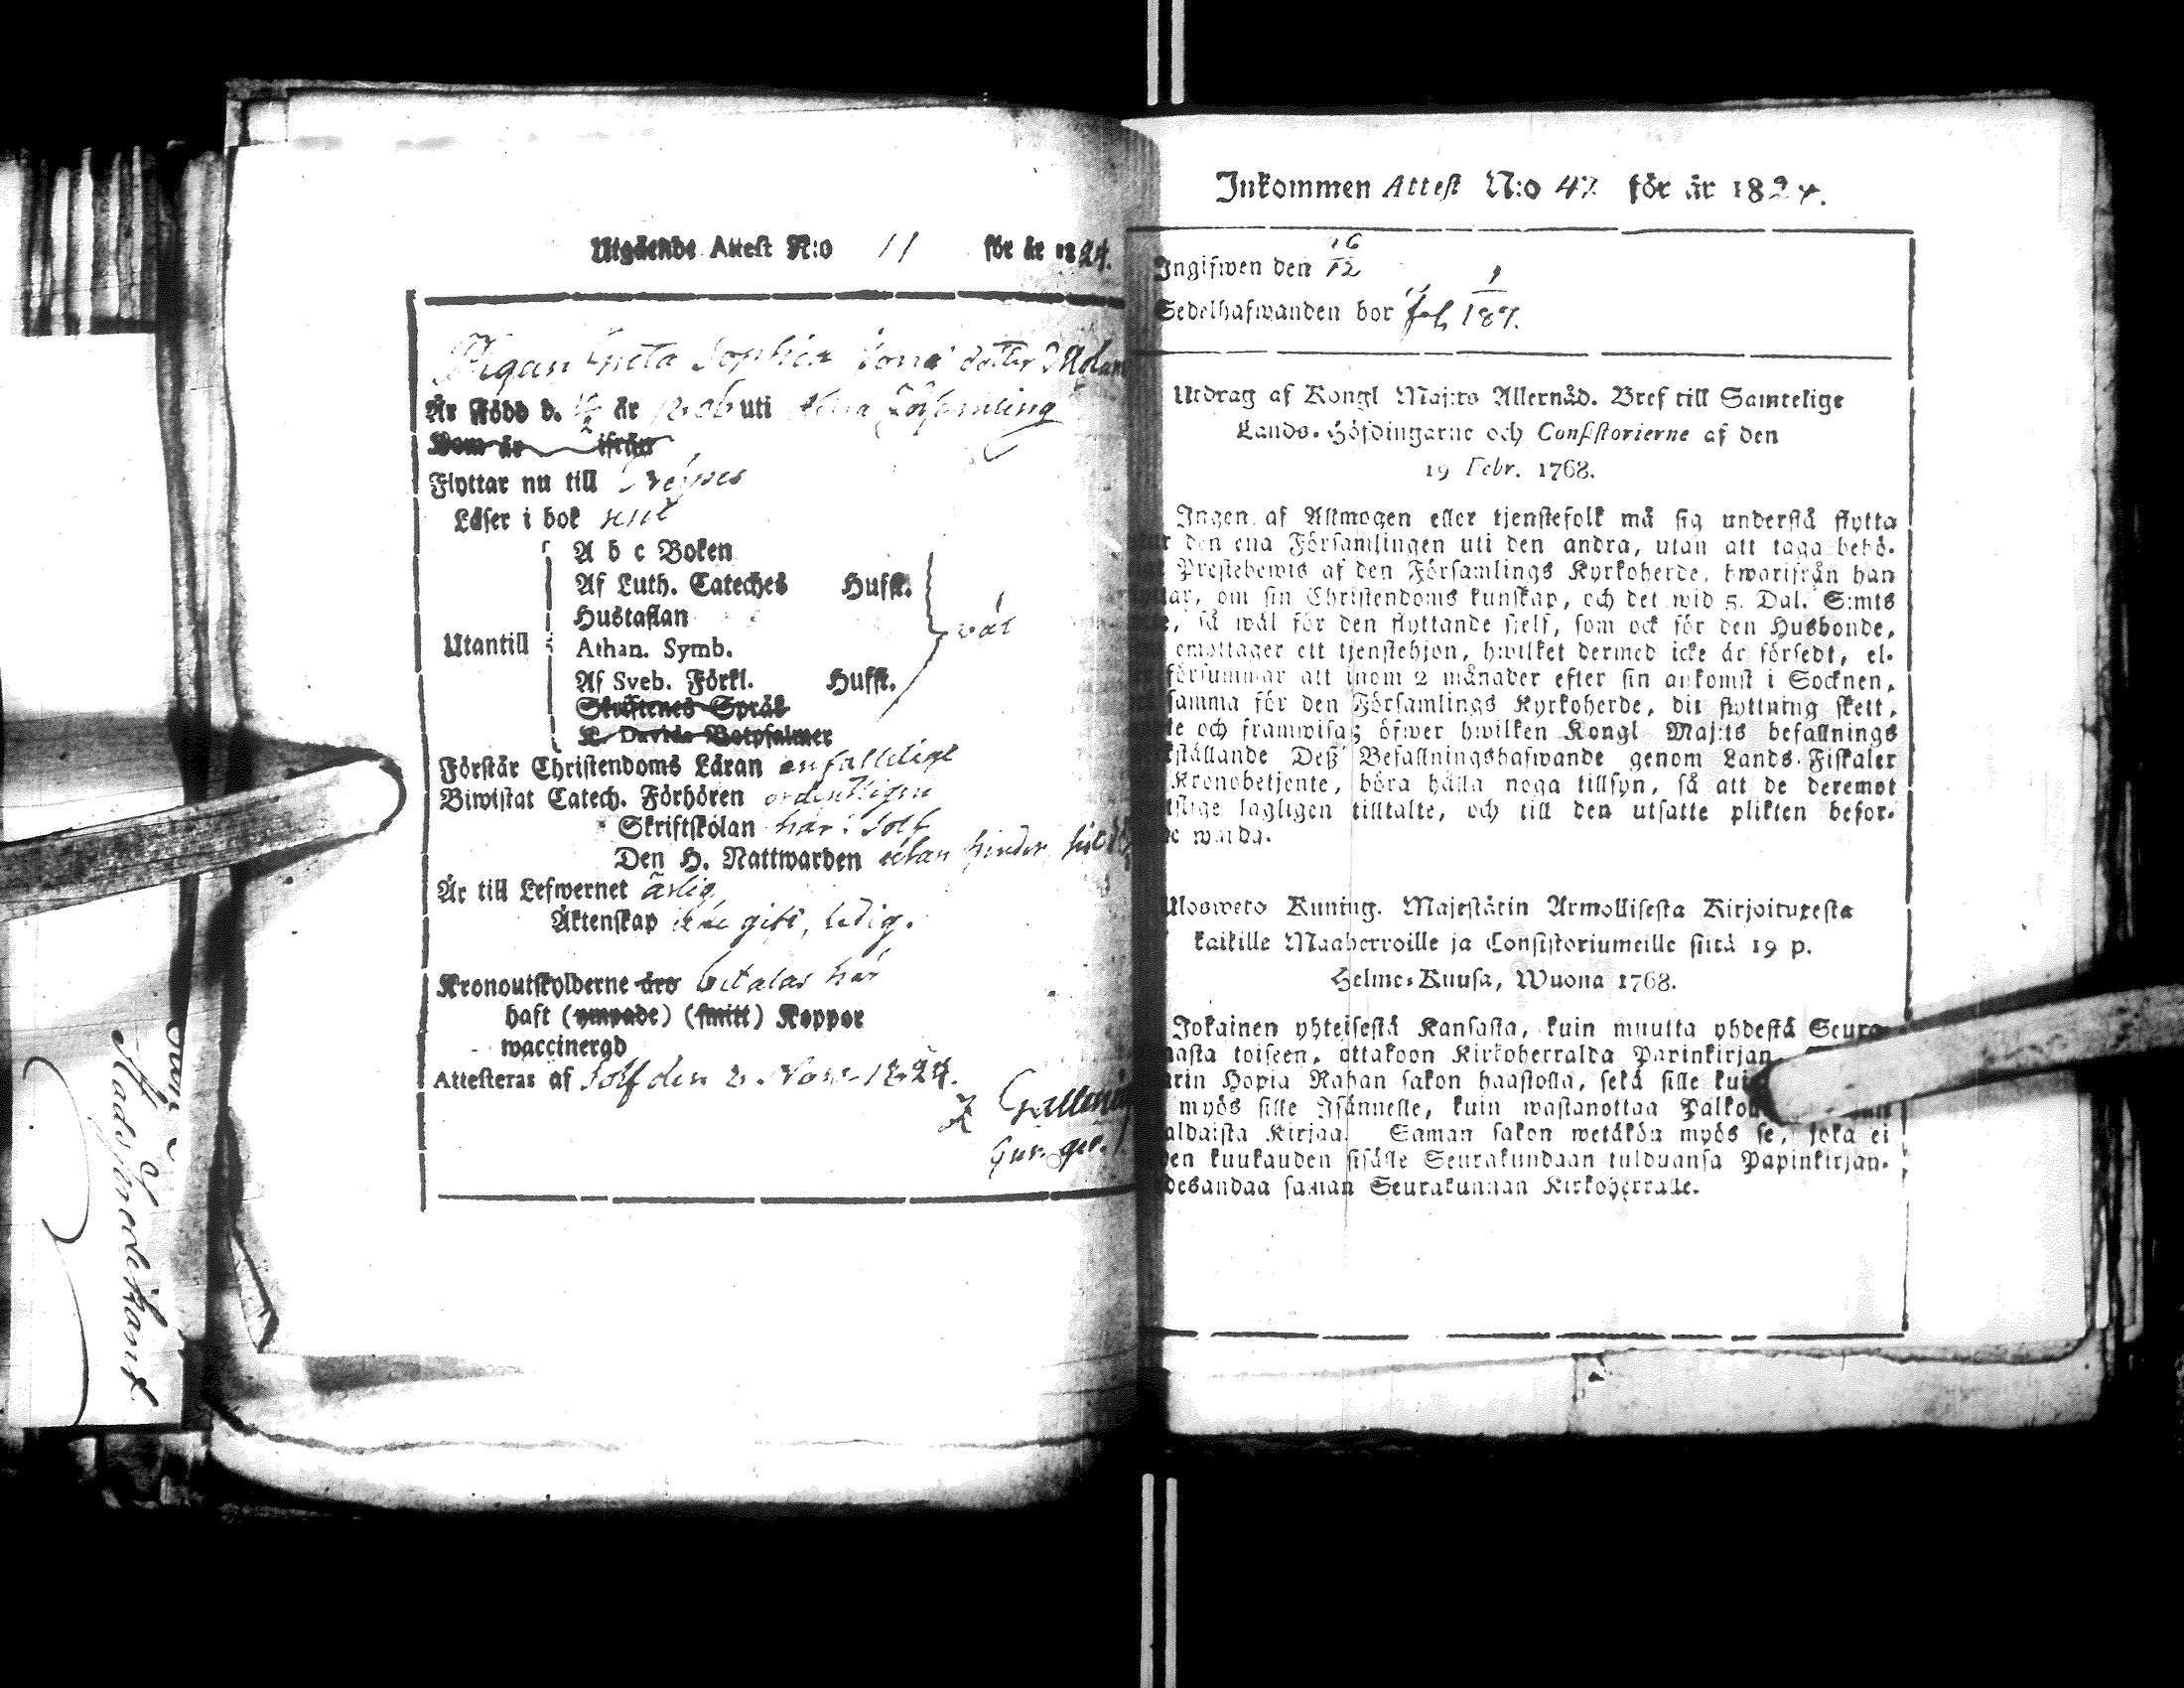 Utgående Attest N:o 11 för år 1824.
Pigan Greta Sophia dotter
Är Född d. år uti
Dom är ifrån
Flyttar nu till
Läser i bok rent
A b c Boken
Af Luth. Cateches Husfl.
Hustaflan
Utantill Athan. Symb.
Af Sveb. Förkl. Husfl.
Skriftenes Språk
K. Davids Botpsalmer
Förstår Christendoms Läran enfalldeligt
Biwistat Catech. Förhören ordentligen
Skriftskolan här i Solf
Den H. Nattwarden utan hinder
Är till Lefwernet ärlig
Äktenskap icke gift, ledig.
Kronoutskylderne äro betalas här
haft (ympade) (smitt) Koppor
waccinerad
Attesteras af Solf den 2. Nov. 1824.
Inkommen Attest N:o 47 för år 1824.
Ingifwen den 16/12
Sedelhafwanden bor fol. 187.
Utdrag af Kongl Maj:ts Allernåd. Bref till Samtelige
Lands-Höfdingarne och Consistorierne af den
19 Febr. 1768.
Ingen af Allmogen eller tjenstefolk må sig understå flytta
den ena Församlingen uti den andra, utan att taga behö-
Prestebewis af den Församlings Kyrkoherde, hwarifrån han
om sin Christendoms kunskap, och det wid 5. Dal. S:mts
så wäl för den flyttande sielf, som ock för den Husbonde,
emottager ett tjenstehjon, hwilket dermed icke är försedt, el-
försummar att inom 2 månader efter sin ankomst i Socknen,
samma för den Församlings Kyrkoherde, dit flyttning skett,
te och framwisa; öfwer hwilken Kongl Maj:ts befallnings
ställande Deß Befallningshafwande genom Lands-Fiskaler
Kronobetjente, böra hålla noga tillsyn, så att de deremot
lagligen tilltalte, och till den utsatte plikten befor-
warda.
Ulosweto Kuning. Majestätin Armollisesta Kirjoituxesta
kaikille Maaherroille ja Consistoriumeille siitä 19 p.
Helme-Kuusa, Wuona 1768.
Jokainen yhteisestä Kansasta, kuin muutta yhdestä Seura-
nasta toiseen, ottakoon Kirkoherralda Papinkirjan,
Hopia Rahan sakon haastolla, sekä sille
myös sille Isännelle, kuin wastanottaa
Kirjaa. Saman sakon wetäkön myös se, joka ei
kuukauden sisälle Seurakundaan tulduansa Papinkirjan-
saman Seurakunnan Kirkoherralle.